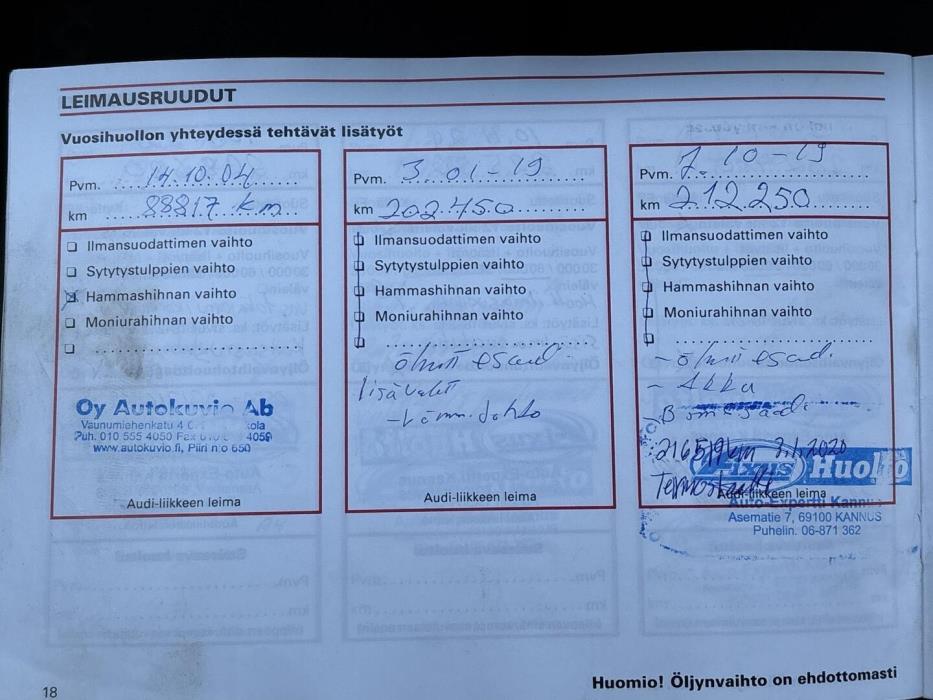 LEIMAUSRUUDUT
Vuosihuollon yhteydessä tehtävät lisätyöt
Pvm. 14.10.04
km 88817 km
Ilmansuodattimen vaihto
Sytytystulppien vaihto
Hammashihnan vaihto
Moniurahihnan vaihto
Oy Autokuvio Ab
Vaunumiehenkatu 4
Puh. 010 555 4050 Fax 4059
www.autokuvio.fi, Piiri n:o 650
Audi-liikkeen leima
Pvm. 3.01-19
km 202450
Ilmansuodattimen vaihto
Sytytystulppien vaihto
Hammashihnan vaihto
Moniurahihnan vaihto
lisävalot
Audi-liikkeen leima
Pvm. 7.10-19
km 212.250
Ilmansuodattimen vaihto
Sytytystulppien vaihto
Hammashihnan vaihto
Moniurahihnan vaihto
- Akku
216519km 3.1.2020
Fixus Huolto
Termostaatti
Audi-liikkeen leima
Auto-Expertti Kannus
Asematie 7, 69100 KANNUS
Puhelin. 06-871 362
18
Huomio! Öljynvaihto on ehdottomasti